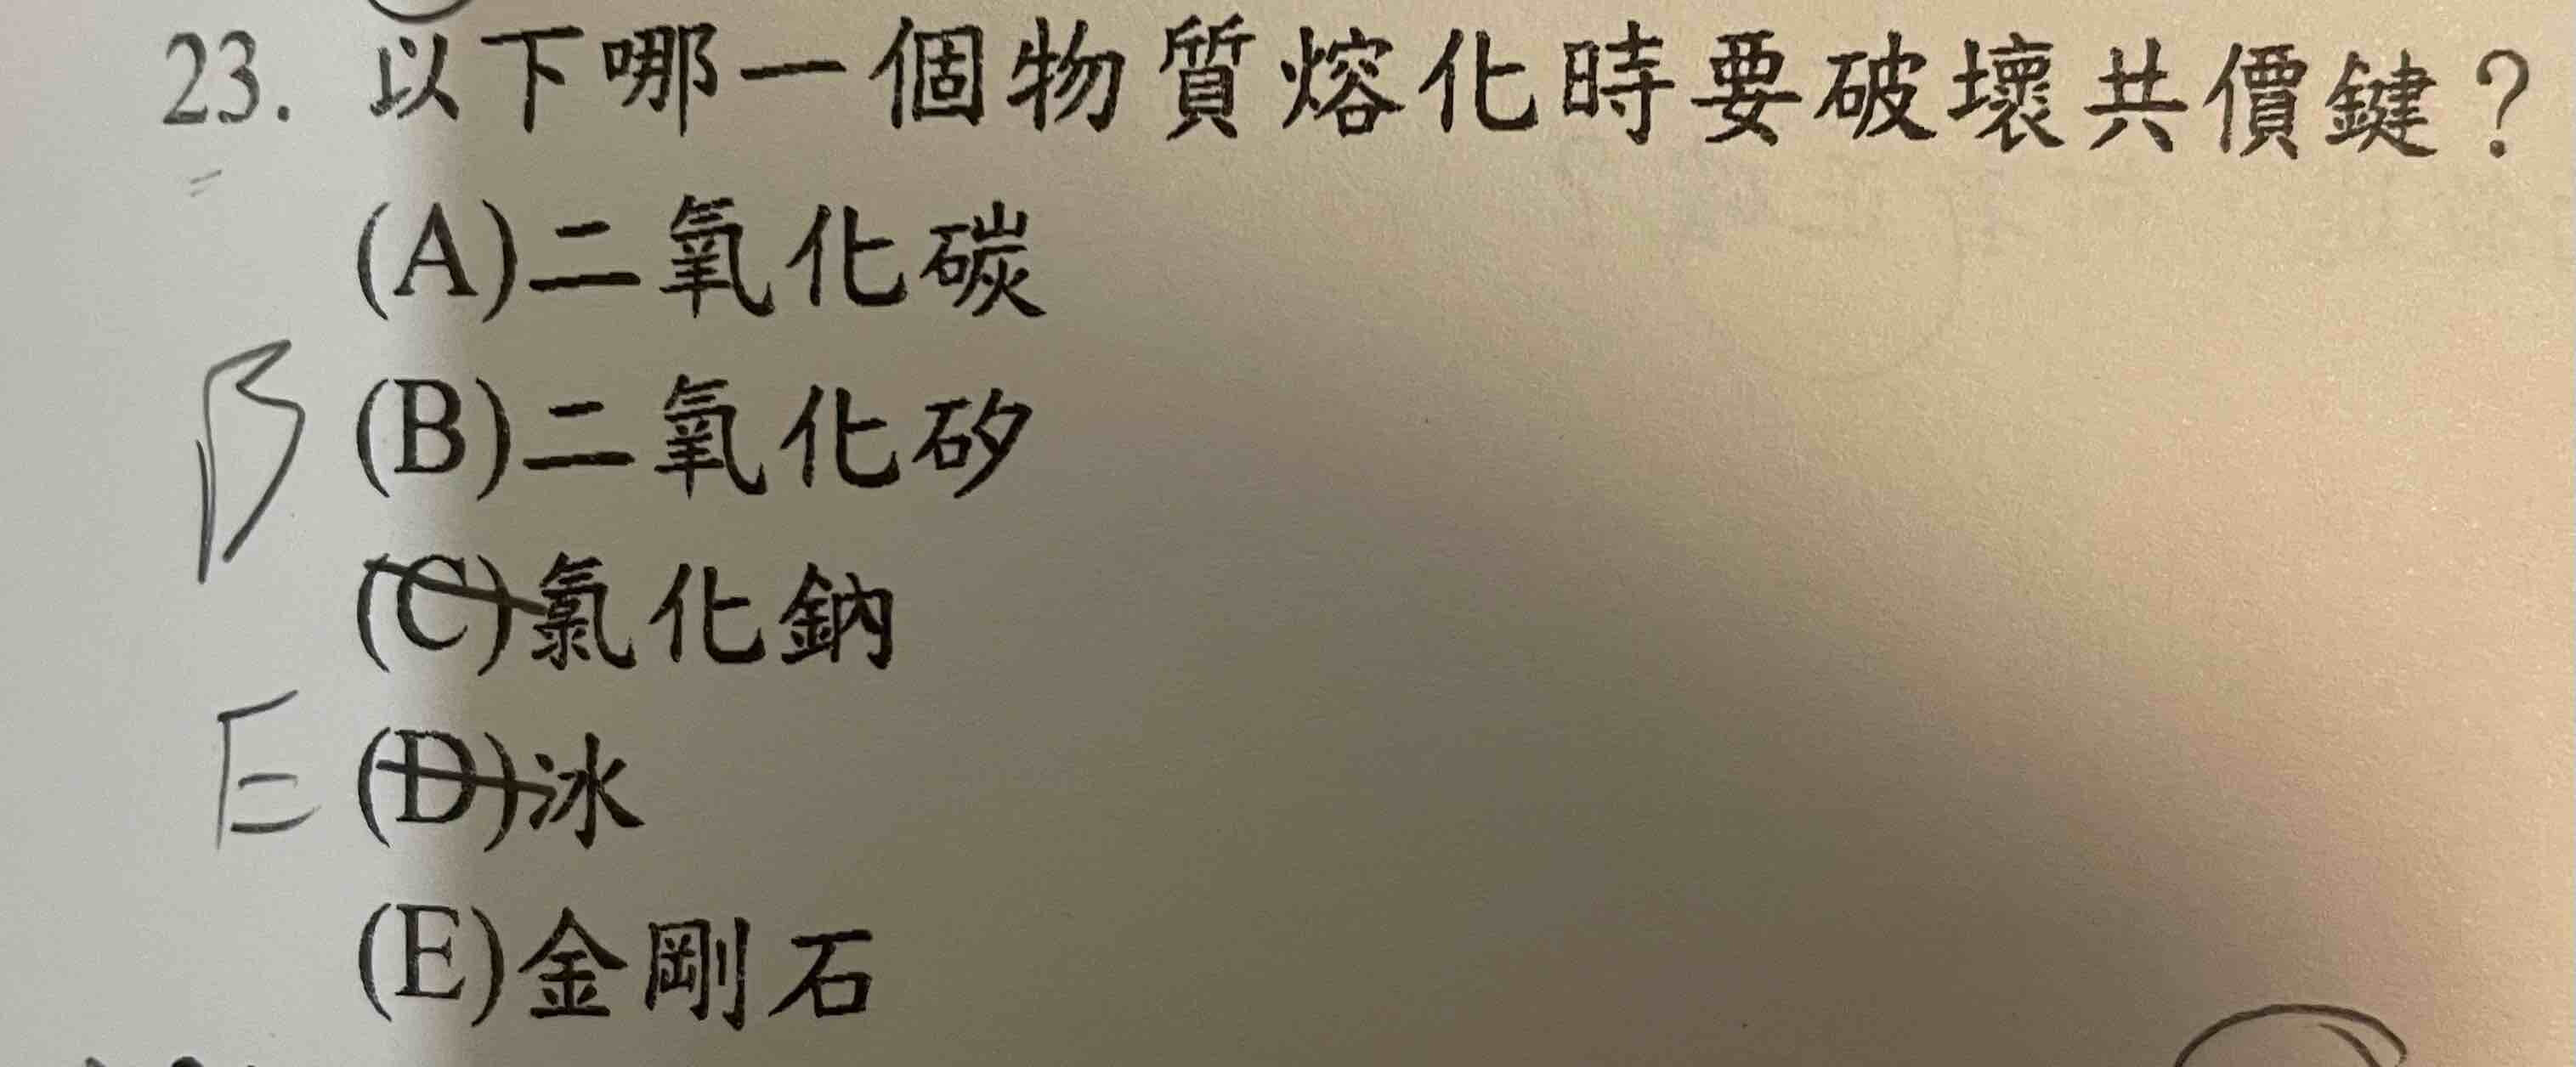 23. 以下哪一個物質熔化時要破壞共價鍵？
(A)二氧化碳
B
(B)二氧化矽
(C)氯化鈉
E
(D)冰
(E)金剛石